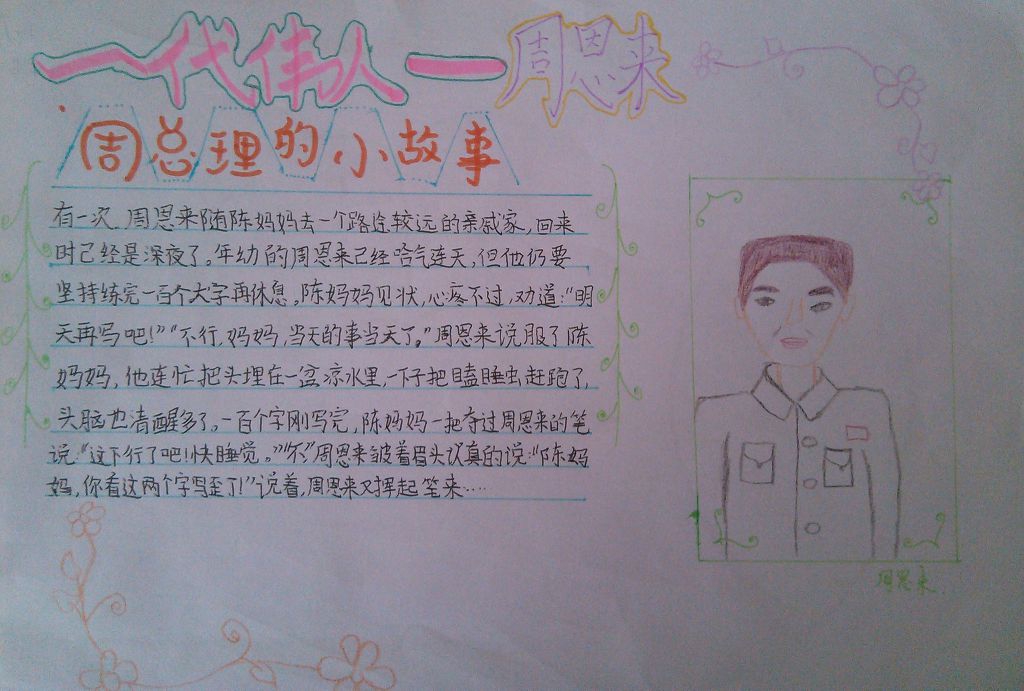 一代伟人一周恩来
周总理的小故事
有一次,周恩来随陈妈妈去一个路途较远的亲戚家,回来
时已经是深夜了。年幼的周恩来已经哈气连天,但他仍要
坚持练完一百个大字再休息。陈妈妈见状,心疼不过,劝道:“明
天再写吧!”“不行,妈妈,当天的事当天了。”周恩来说服了陈
妈妈,他连忙把头埋在一盆凉水里,一下子把瞌睡虫赶跑了,
头脑也清醒多了。一百个字刚写完,陈妈妈一把夺过周恩来的笔
说:“这下行了吧!快睡觉。”“不”周恩来皱着眉头认真的说:“陈妈
妈,你看这两个字写歪了!”说着,周恩来又挥起笔来……
周恩来